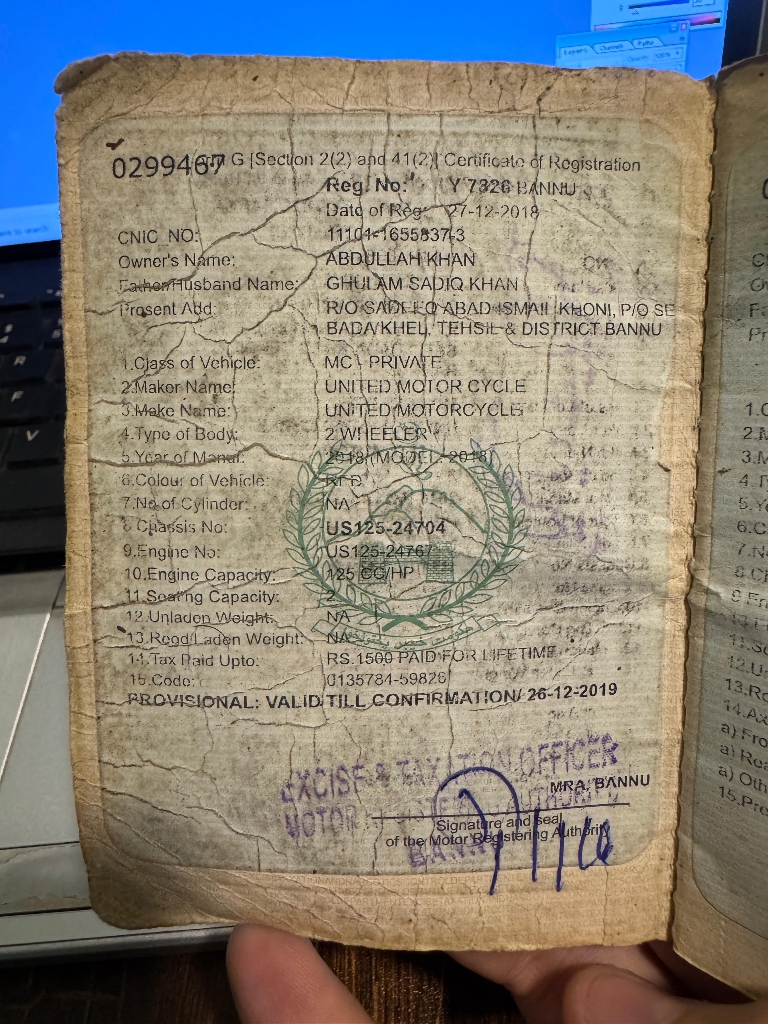 0299467 G [Section 2(2) and 41(2)] Certificate of Registration
Reg. No: Y 7326 BANNU
Date of Reg: 27-12-2018
CNIC NO: 11101-1655837-3
Owner's Name: ABDULLAH KHAN
Father/Husband Name: GHULAM SADIQ KHAN
Present Add: R/O SADEEQ ABAD ISMAIL KHONI, P/O SE
BADA KHEL, TEHSIL & DISTRICT BANNU
1.Class of Vehicle: MC - PRIVATE
2.Maker Name: UNITED MOTOR CYCLE
3.Make Name: UNITED MOTORCYCLE
4.Type of Body: 2 WHEELER
5.Year of Manuf: 2018 (MODEL: 2018)
6.Colour of Vehicle: RED
7.No of Cylinder: NA
8 Chassis No: US125-24704
9.Engine No: US125-24767
10.Engine Capacity: 125 CC/HP
11.Seating Capacity: 2
12.Unladen Weight: NA
13.Regd/Laden Weight: NA
14.Tax Paid Upto: RS.1500 PAID FOR LIFETIME
15.Code: 0135784-59826
PROVISIONAL: VALID TILL CONFIRMATION/ 26-12-2019
EXCISE & TAXATION OFFICER
MRA, BANNU
MOTOR AUTHORITY
Signature and seal
of the Motor Registering Authority